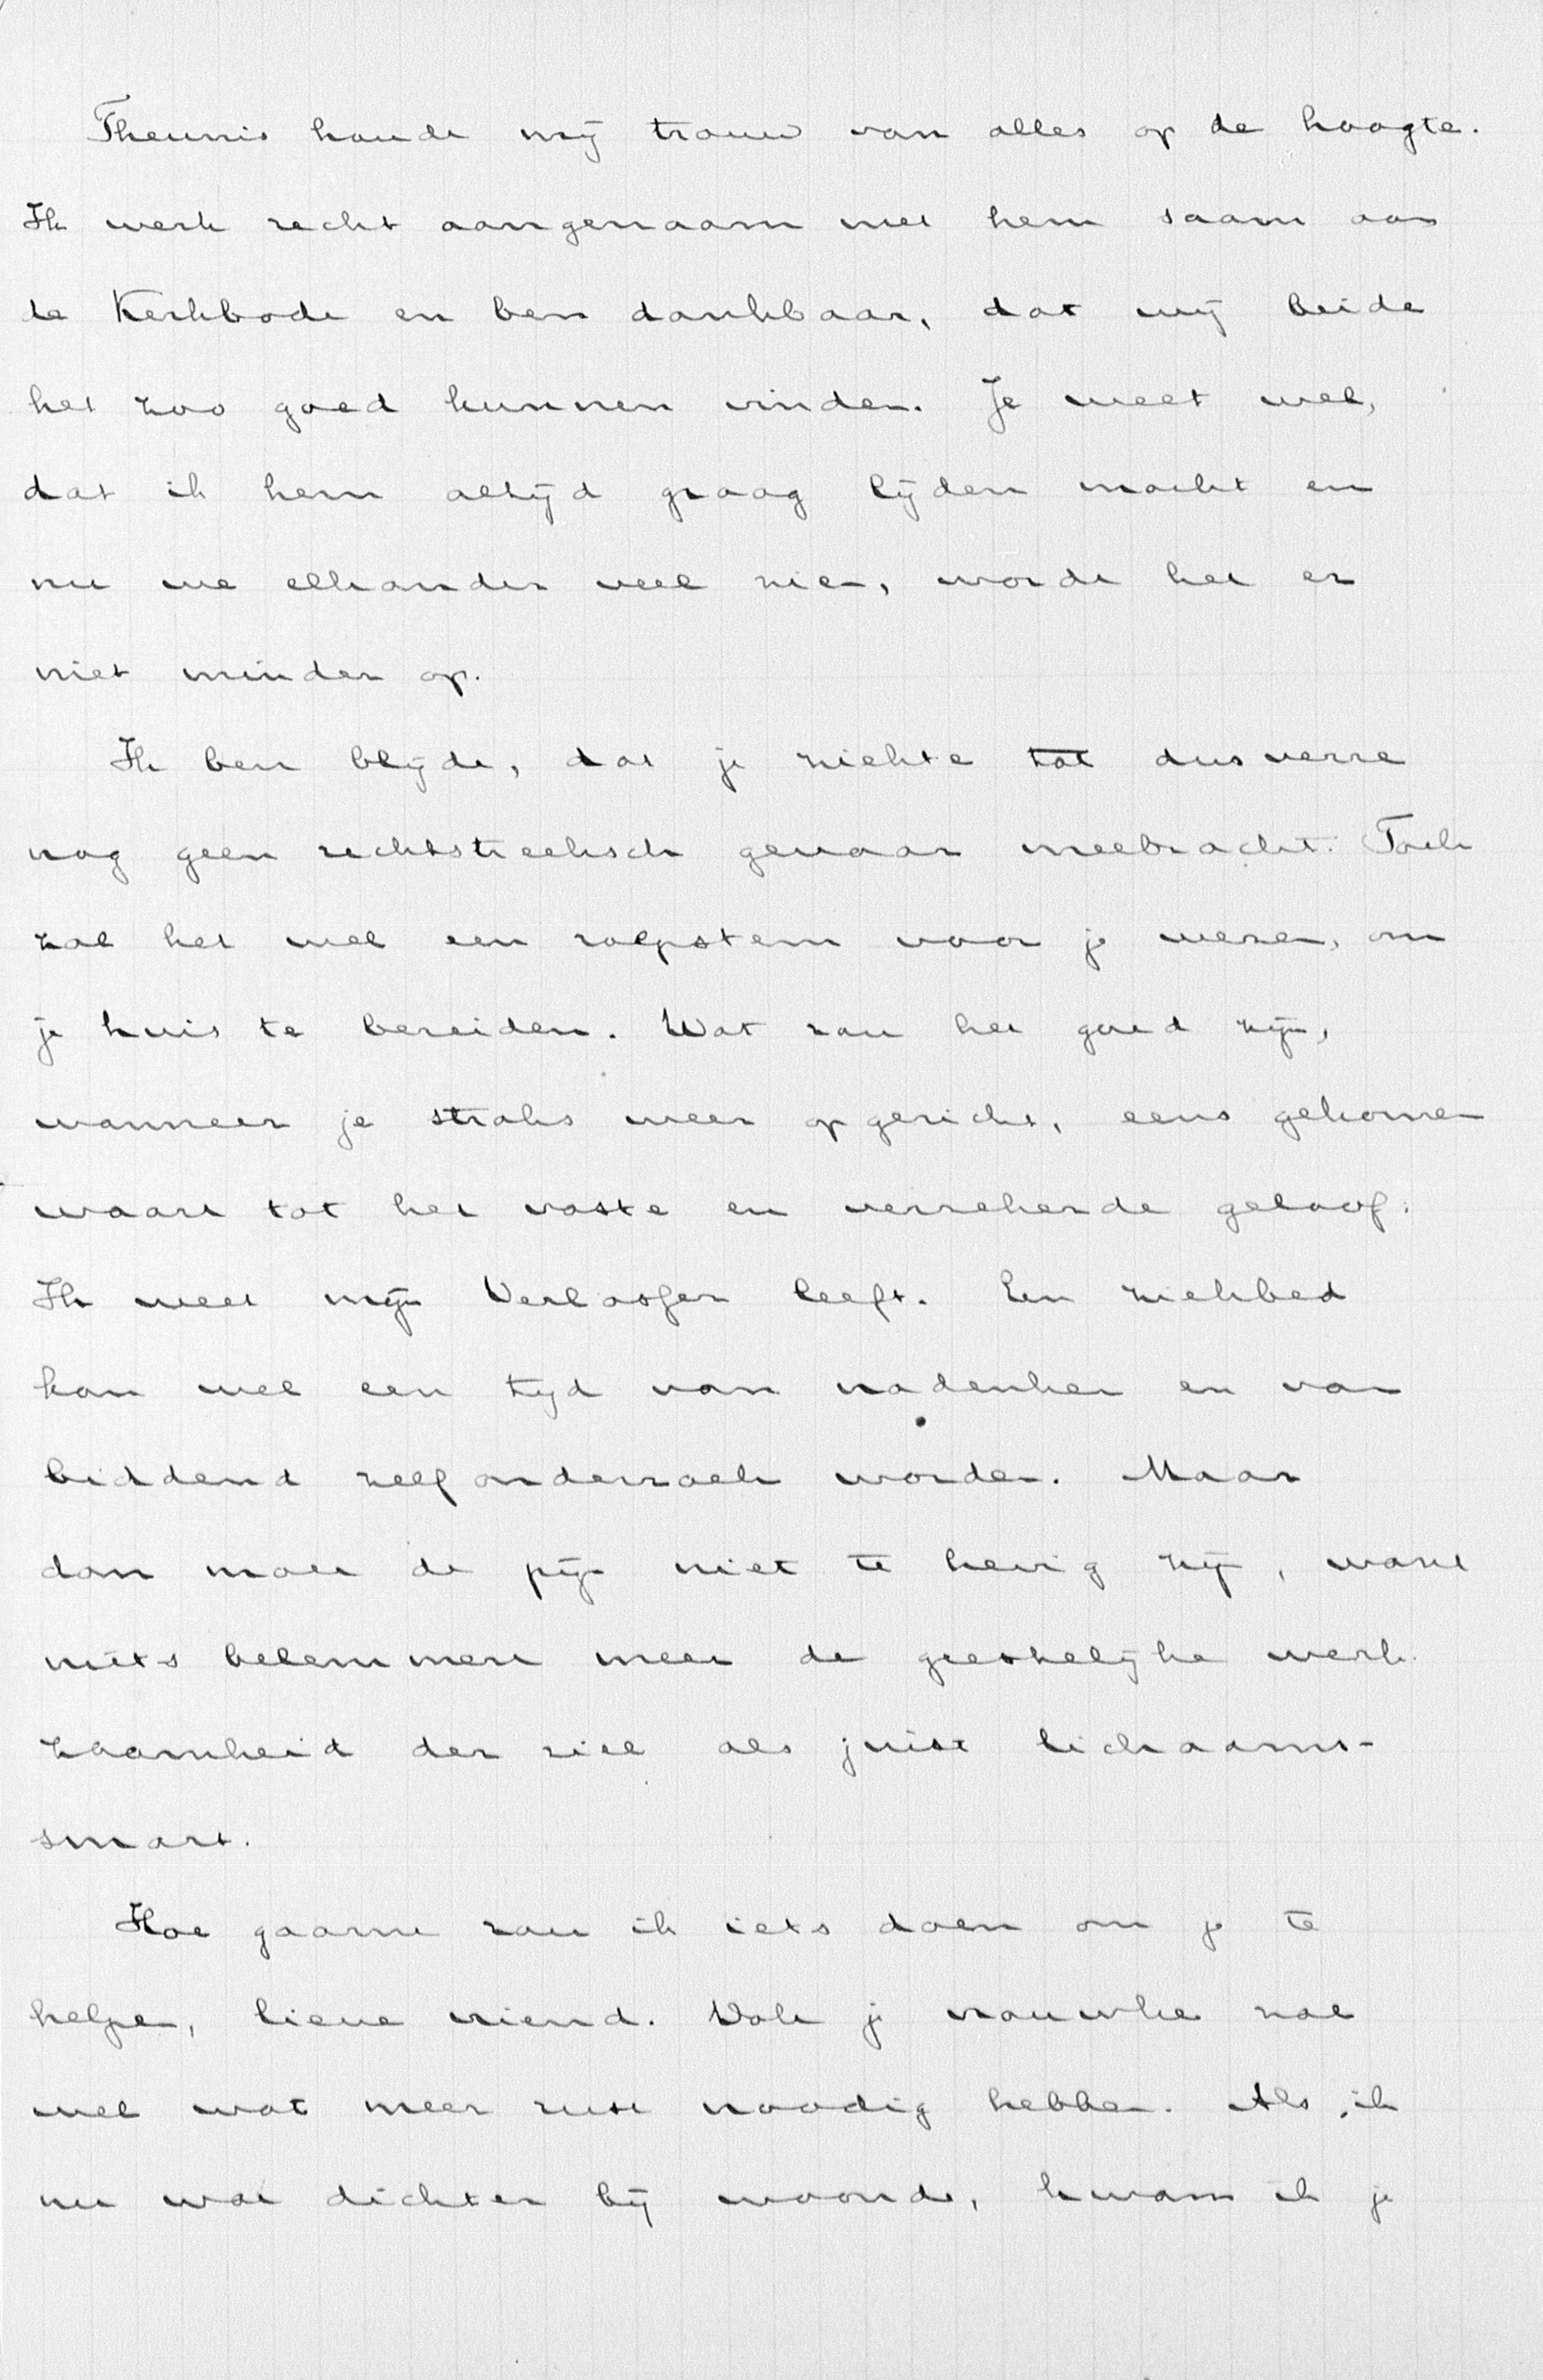 Theunis houdt mij trouw van alles op de hoogte.
Ik werk recht aangenaam met hem saam aan
de Kerkbode en ben dankbaar, dat wij beide
het zoo goed kunnen vinden. Je weet wel,
dat ik hem altijd graag lijden mocht en
nu we elkander veel zien, wordt het er
niet minder op.
Ik ben blijde, dat je ziekte tot dusverre
nog geen rechtstreeksch gevaar meebracht. Toch
zal het wel een roepstem voor je wezen, om
je huis te bereiden. Wat zou het goed zijn,
wanneer je straks weer opgericht, eens gekomen
waart tot het vaste en verzekerde geloof:
Ik weet mijn Verlosser leeft. Een ziekbed
kan wel een tijd van nadenken en van
biddend zelfonderzoek worden. Maar
dan moet de pijn niet te hevig zijn, want
niets belemmert meer de geestelijke werk-
zaamheid der ziel als juist lichaams-
smart.
Hoe gaarne zou ik iets doen om je te
helpen, lieve vriend. Ook je vrouwke zal
wel wat meer rust noodig hebben. Als ik
nu wat dichter bij woonde, kwam ik je